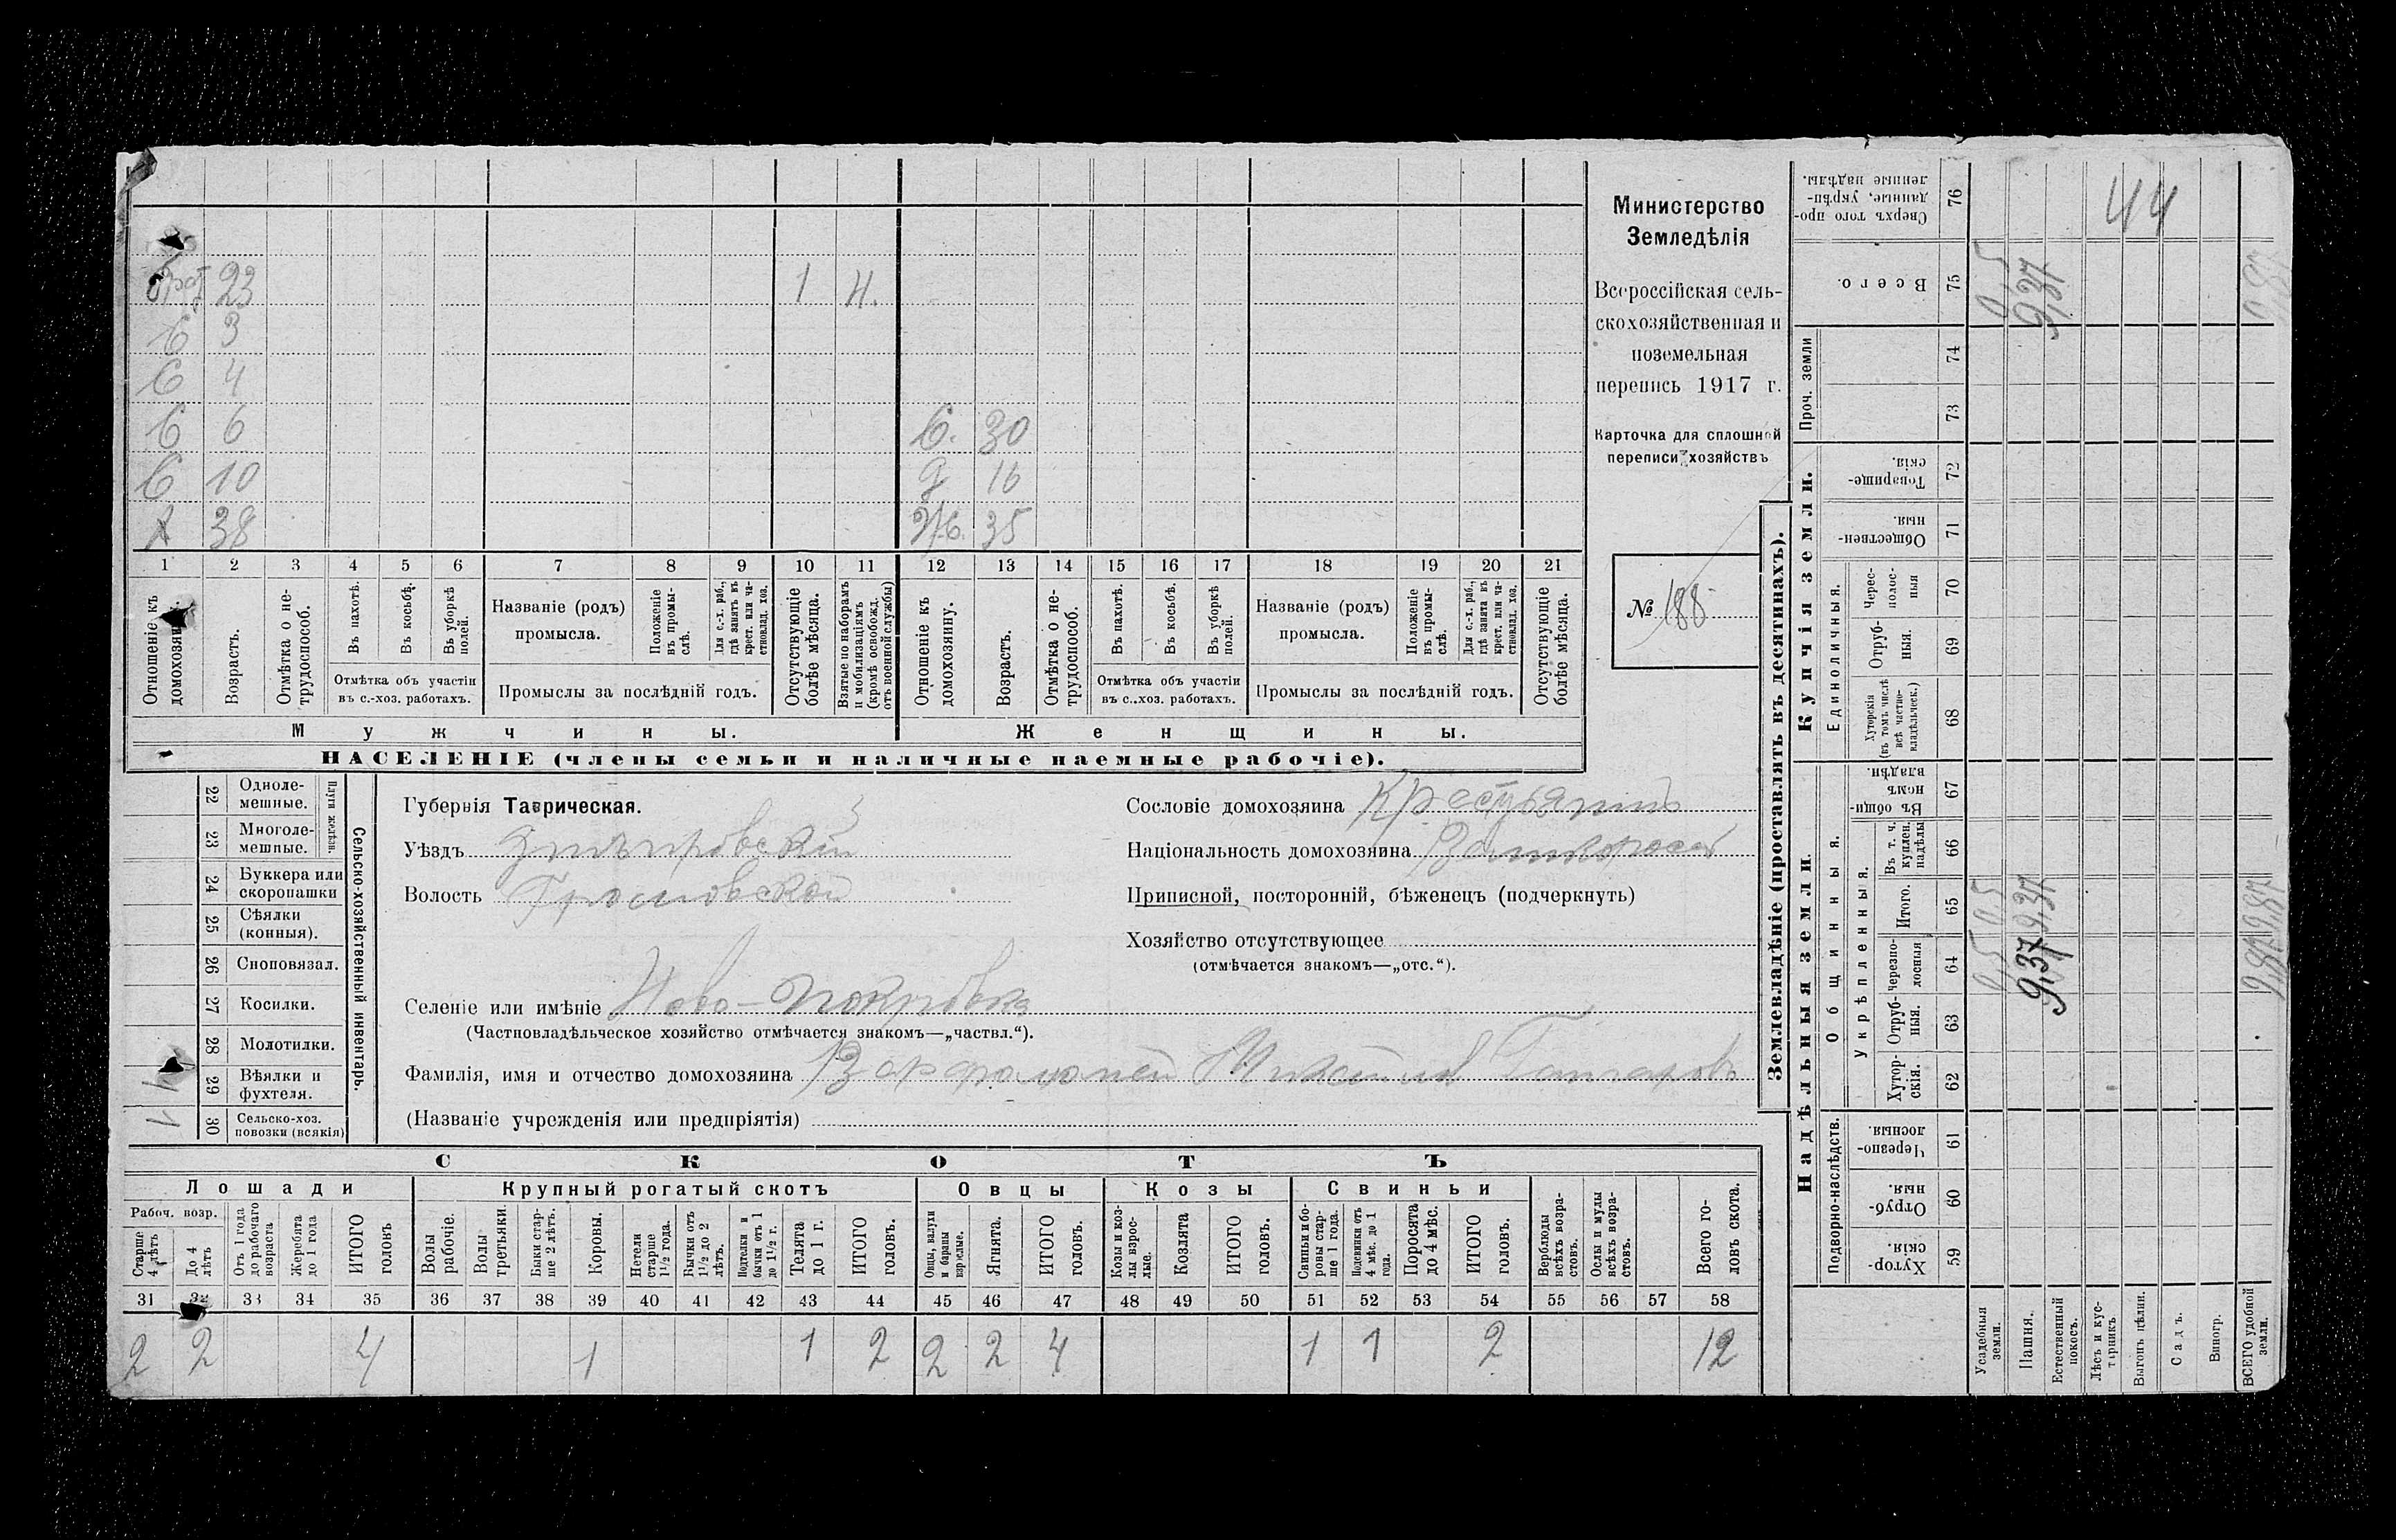 Министерство
Земледѣлія
Всероссійская сель-
скохозяйственная и
поземельная
перепись 1917 г.
Карточка для сплошной
переписи хозяйствъ
№ 188
брат 23 1 Н.
С 3
С 4
С 6 С. 30
С 10 д 16
Х 38 Ж. 35
1 2 3 4 5 6 7 8 9 10 11 12 13 14 15 16 17 18 19 20 21
Отношеніе къ домохозяину.
Возрастъ.
Отмѣтка о не-трудоспособ.
Въ пахотѣ.
Въ косьбѣ.
Въ уборкѣ полей.
Отмѣтка объ участіи
въ с.-хоз. работахъ.
Названіе (родъ)
промысла.
Положеніе въ промы-слѣ.
Для с.-х. раб., гдѣ занятъ въ крест. или ча-стновлад. хоз.
Промыслы за послѣдній годъ.
Отсутствующіе болѣе мѣсяца.
Взятые по наборамъ и мобилизаціямъ (кромѣ освобожд. отъ военной службы)
Отношеніе къ домохозяину.
Возрастъ.
Отмѣтка о не-трудоспособ.
Въ пахотѣ.
Въ косьбѣ.
Въ уборкѣ полей.
Отмѣтка объ участіи
въ с..хоз. работахъ.
Названіе (родъ)
промысла.
Положеніе въ промы-слѣ.
Для с.-х. раб., гдѣ занята въ крест. или ча-стновлад. хоз.
Промыслы за послѣдній годъ.
Отсутствующіе болѣе мѣсяца.
Мужчины. Женщины.
НАСЕЛЕНІЕ (члены семьи и наличные наемные рабочіе).
22 Одноле-мешные.
23 Многоле-мешные.
Плуги желѣзн.
24 Буккера или скоропашки
25 Сѣялки (конныя).
26 Сноповязал.
27 Косилки.
28 Молотилки.
29 Вѣялки и фухтеля.
30 Сельско-хоз. повозки (всякія)
1
Сельско-хозяйственный инвентарь.
Губернія Таврическая.
Уѣздъ Днѣпровскій
Волость
Селеніе или имѣніе Ново-Покровка
(Частновладѣльческое хозяйство отмѣчается знакомъ—„частвл.“).
Фамилія, имя и отчество домохозяина
(Названіе учрежденія или предпріятія)
Сословіе домохозяина Крестьянинъ
Національность домохозяина Великороссъ
Приписной, посторонній, бѣженецъ (подчеркнуть)
Хозяйство отсутствующее
(отмѣчается знакомъ—„отс.“).
СКОТЪ
Лошади
Крупный рогатый скотъ
Овцы
Козы
Свиньи
Рабоч. возр.
Старше 4 лѣтъ
До 4 лѣтъ
Отъ 1 года до рабочаго возраста
Жеребята до 1 года
ИТОГО головъ
Волы рабочіе.
Волы третьяки.
Быки стар-ше 2 лѣтъ.
Коровы.
Нетели старше 1½ года.
Бычки отъ 1½ до 2 лѣтъ.
Подтелки и бычки отъ 1 до 1½ г.
Телята до 1 г.
ИТОГО головъ.
Овцы, валухи и бараны взрослые.
Ягнята.
ИТОГО головъ.
Козы и коз-лы взрос-лые.
Козлята
ИТОГО головъ.
Свиньи и бо-ровы стар-ше 1 года.
Подсвинки отъ 4 мѣс. до 1 года.
Поросята до 4 мѣс.
ИТОГО головъ.
Верблюды всѣхъ возра-стовъ.
Ослы и мулы всѣхъ возра-стовъ.
Всего го-ловъ скота.
31 32 33 34 35 36 37 38 39 40 41 42 43 44 45 46 47 48 49 50 51 52 53 54 55 56 57 58
2 2 4 1 1 2 2 2 4 1 1 2 12
Землевладѣніе (проставлять въ десятинахъ).
Купчія земли.
Надѣльныя земли.
Сверхъ того про-данные, укрѣп-ленные надѣлы. 76
44
Всего. 75
0,5 9,37 9,87
Проч. земли
74
73
Товарище-скія. 72
Обществен-ныя. 71
Единоличныя.
Черес-полос-ныя 70
Отруб-ныя. 69
Хуторскія (въ томъ числѣ всѣ частно-владѣльческ.) 68
Общинныя.
Въ общин-номъ владѣн. 67
Укрѣпленныя.
Въ т. ч. куплен. надѣлы 66
Итого. 65
0,5 9,37 9,87
Черезпо-лосныя 64
0,5 9,37 9,87
Отруб-ныя. 63
Хутор-скія. 62
Подворно-наслѣдств.
Черезпо-лосныя. 61
Отруб-ныя. 60
Хутор-скія. 59
Усадебныя земли.
Пашня.
Естественный покосъ.
Лѣсъ и кус-тарникъ
Выгонъ цѣлин.
Садъ.
Виногр.
ВСЕГО удобной земли.